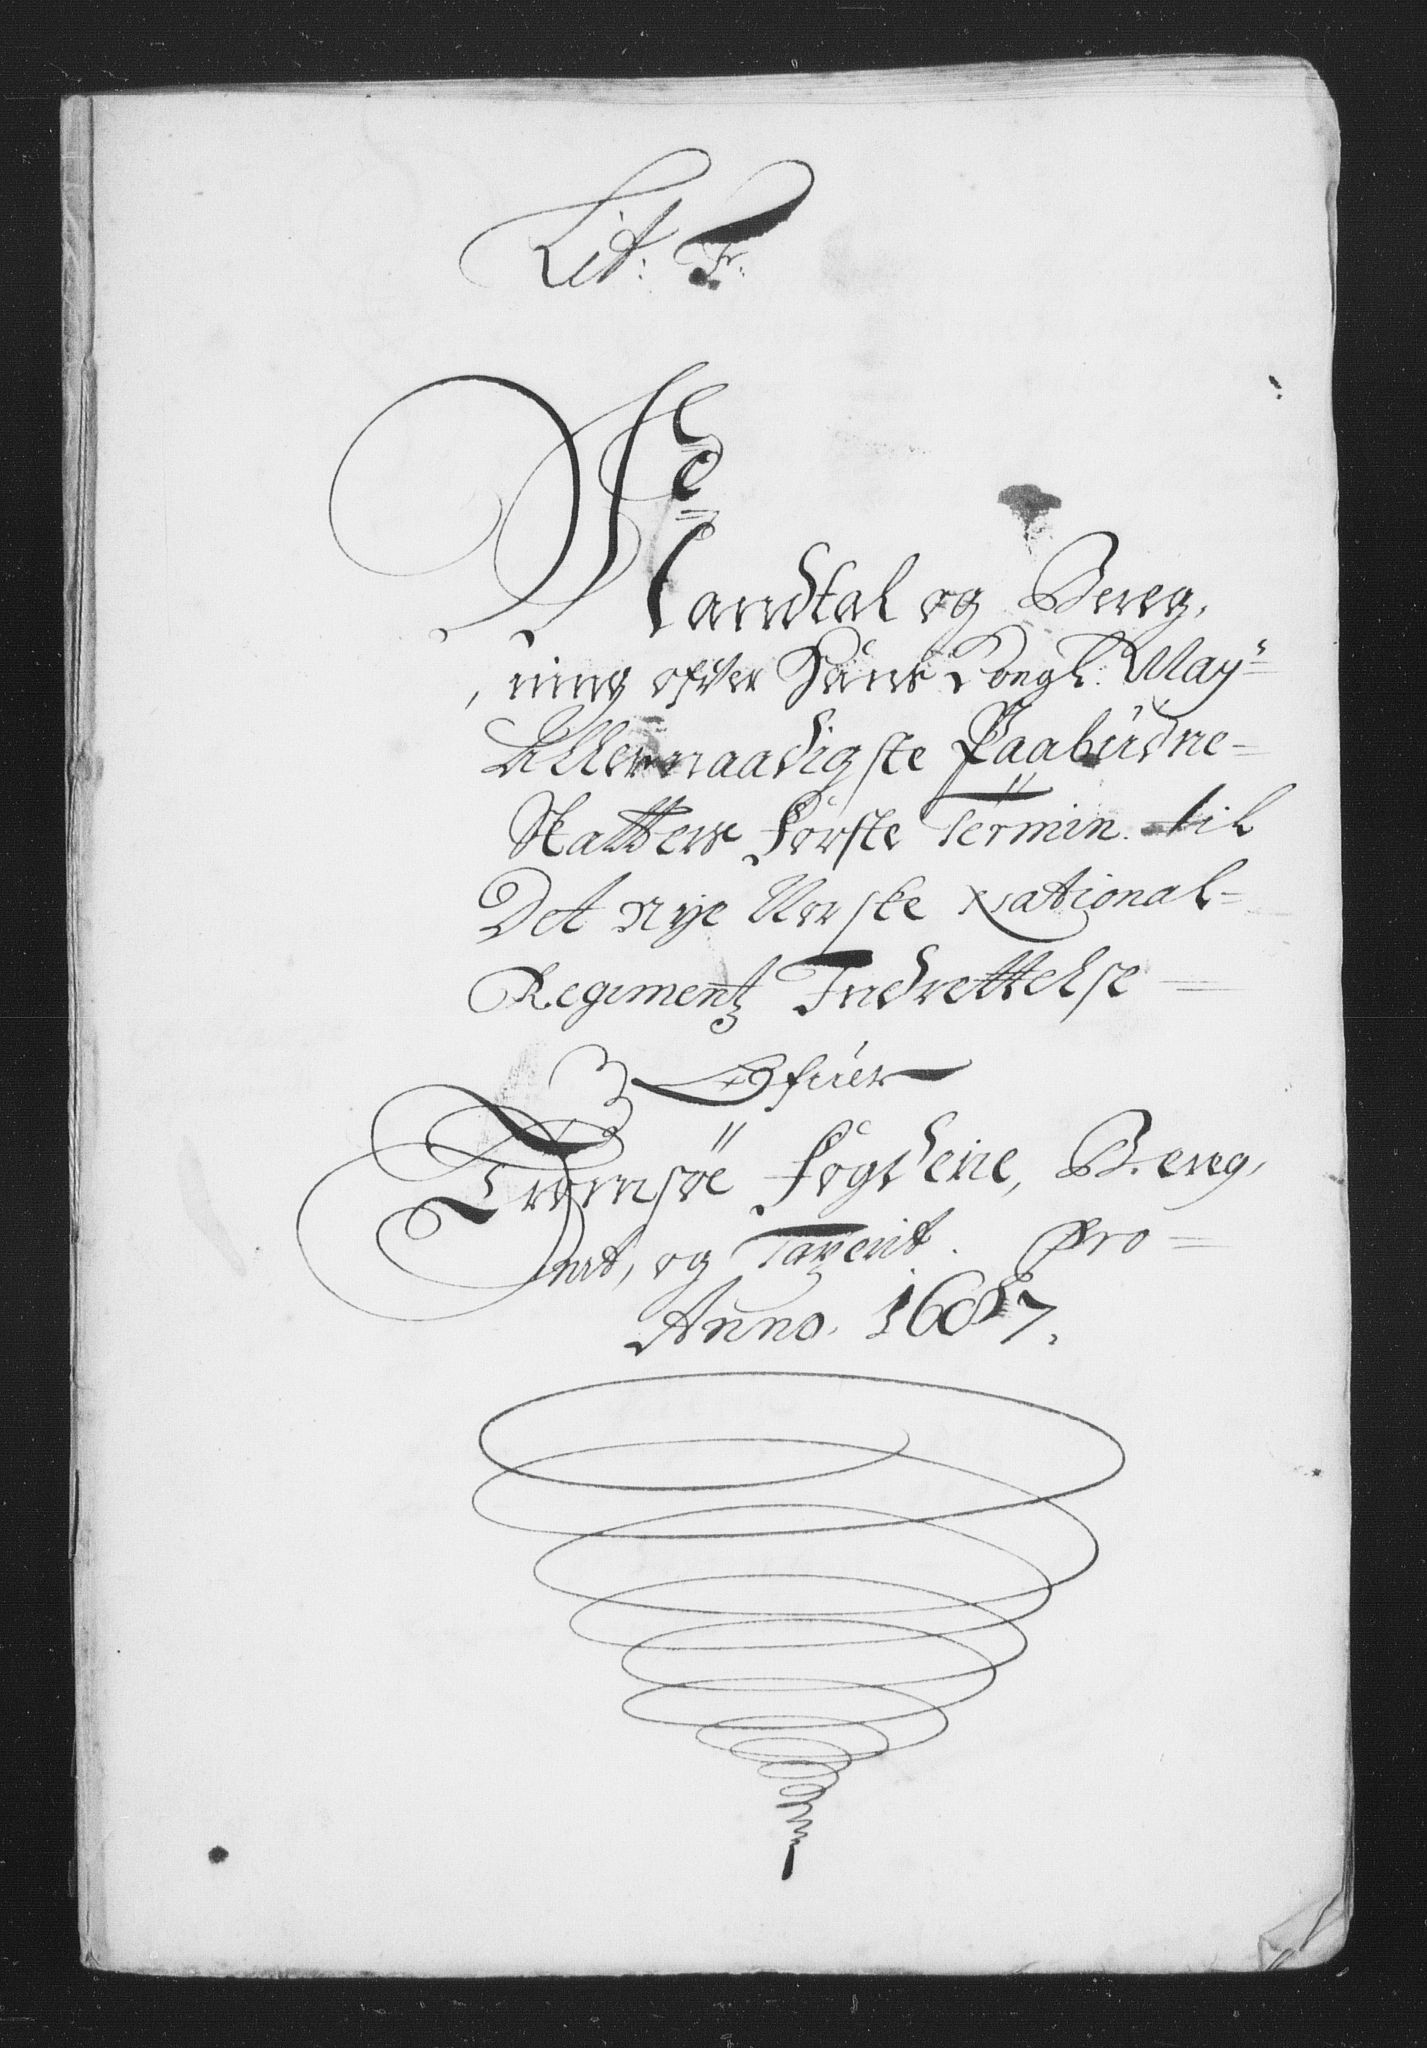 Lit: F.
Mandtal og Bereg,
, ning ofver Hans Kongl: May:
Allernaadigste Paabudne
Skatters Første Termin til
Det nye Norske National
Regimentz Indrettelse
Ofuer
Tromsøe Fogderie, Bereg,
net, og Taxerit. Pro
Anno. 1687.